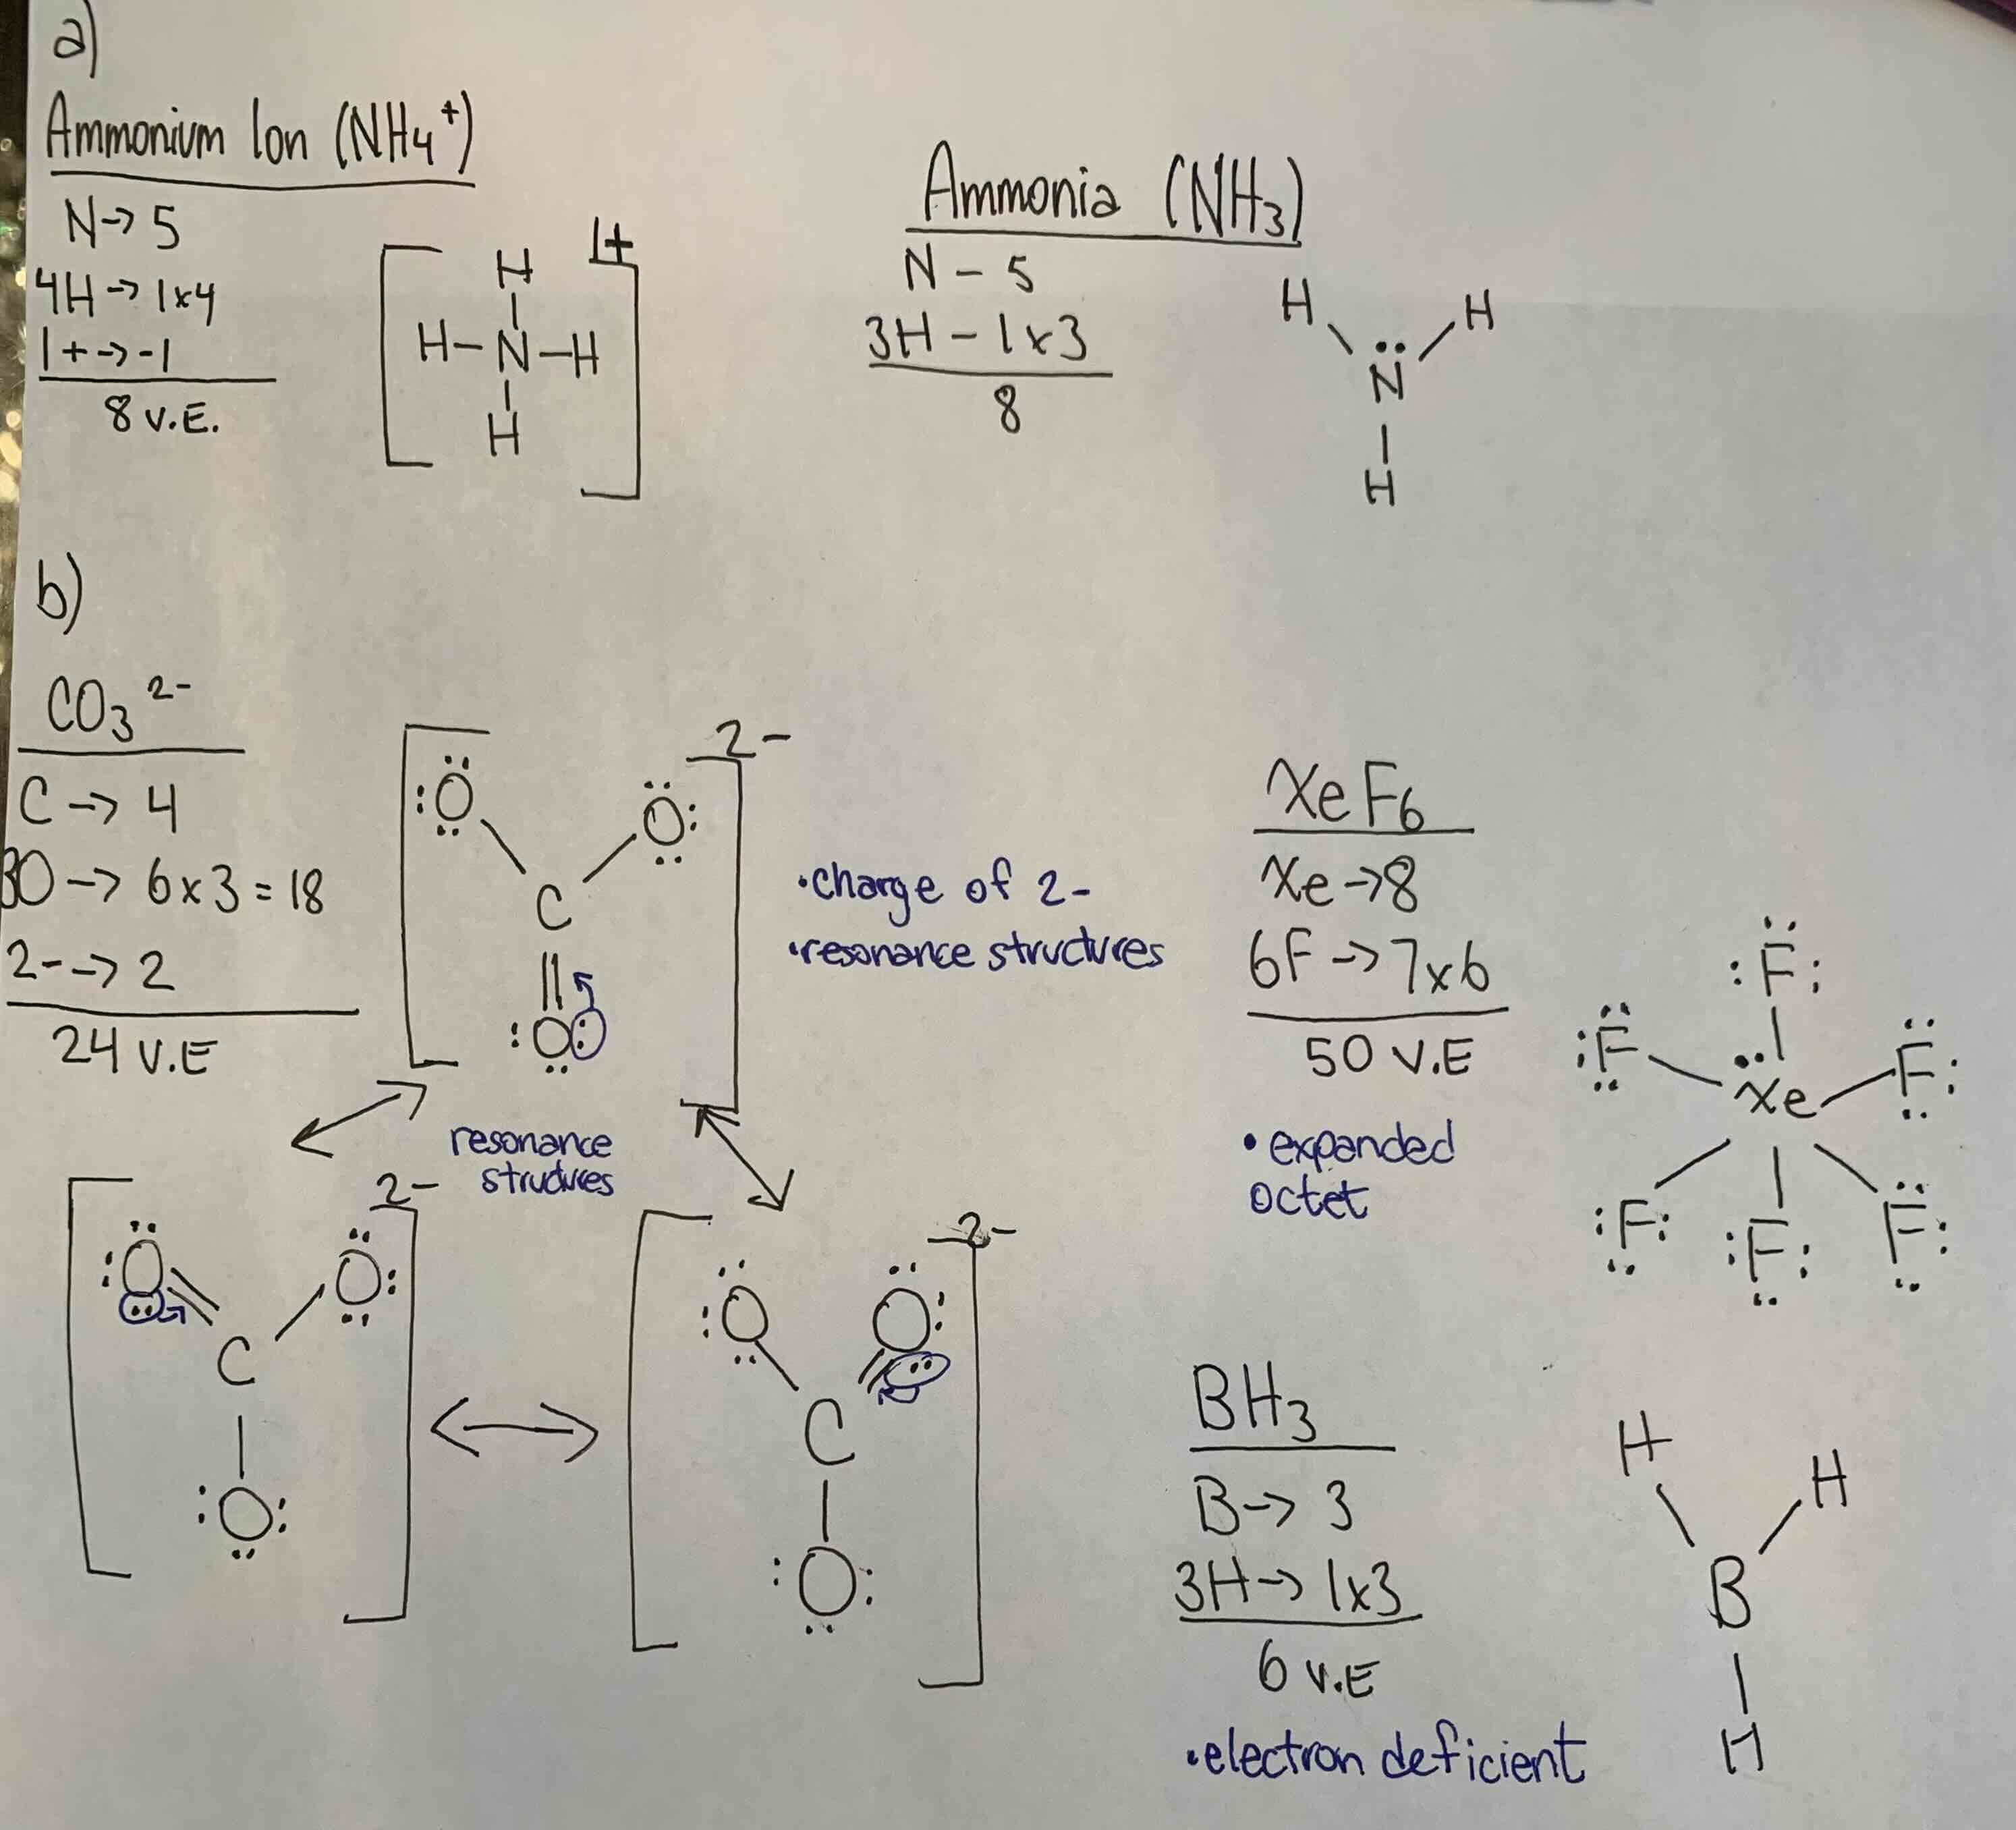 a)
Ammonium Ion (NH4+)
N→ 5
4H→ 1x4
1+→-1
8 V.E.
1+
H
H-N-H
H
Ammonia (NH3)
N - 5
3H - 1x3
8
H H
N
H
b)
CO3 2-
C→ 4
3O→ 6x3=18
2-→ 2
24 V.E
2-
O O
C
O
•charge of 2-
•resonance structures
resonance
structures
2-
O O
C
O
2-
O O
C
O
XeF6
Xe→8
6F→7x6
50 V.E
•expanded
octet
F
F F
Xe
F F F
BH3
B→ 3
3H→ 1x3
6 V.E
•electron deficient
H H
B
H